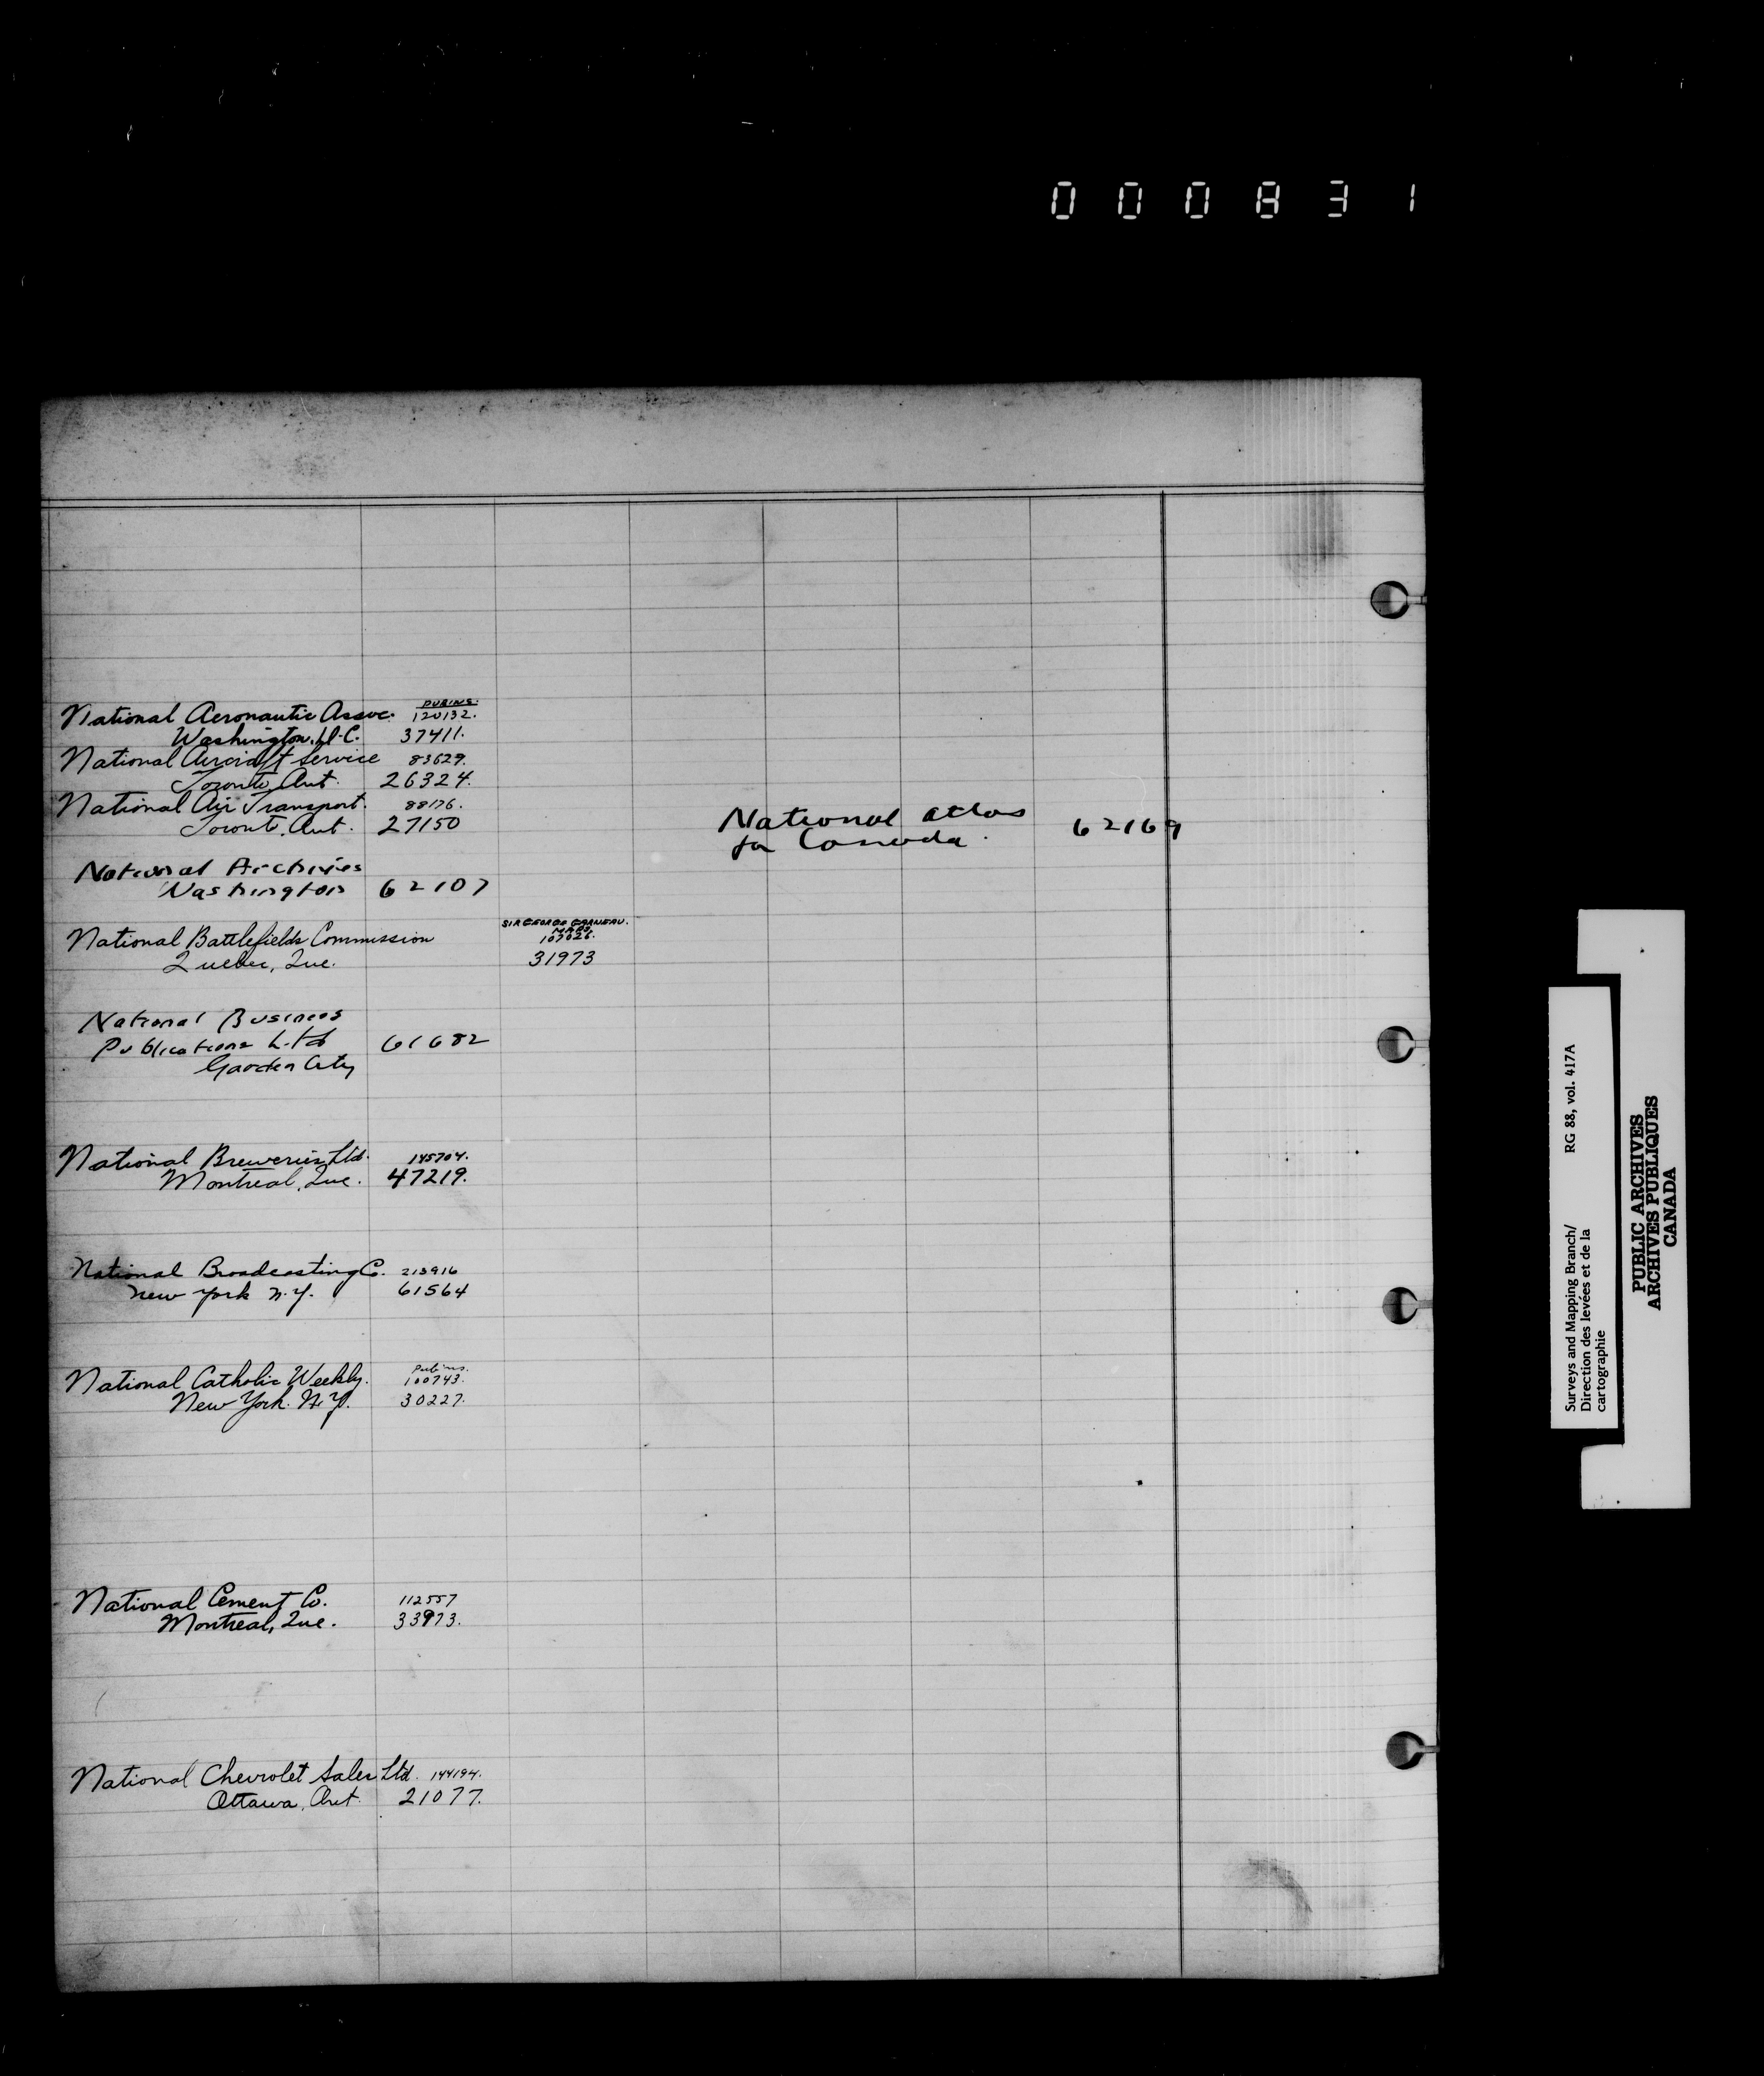 000831
National Aeronautic Assoc. PUBINS. 120132.
Washington, D.C. 37411.
National Aircraft Service 83629.
Toronto, Ont. 26324.
National Air Transport. 88176.
Toronto, Ont. 27150
National Atlas
for Canada. 62169
National Archives
Washington 62107
National Battlefields Commission SIR GEORGE GARNEAU. MAPS.
Quebec, Que. 31973
National Business
Publications Ltd 61682
Garden City
National Breweries Ltd. 145704.
Montreal, Que. 47219.
National Broadcasting Co. 213916
New York N.Y. 61564
National Catholic Weekly. Pubins. 100743.
New York. N.Y. 30227.
National Cement Co. 112557
Montreal, Que. 33973.
National Chevrolet Sales Ltd. 144194.
Ottawa, Ont. 21077.
Surveys and Mapping Branch/ RG 88, vol. 417A
Direction des levées et de la
cartographie
PUBLIC ARCHIVES
ARCHIVES PUBLIQUES
CANADA